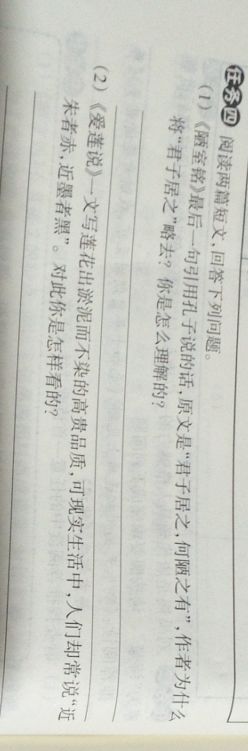 任务四 阅读两篇短文,回答下列问题。
(1)《陋室铭》最后一句引用孔子说的话,原文是“君子居之,何陋之有”,作者为什么
将“君子居之”略去?你是怎么理解的?
(2)《爱莲说》一文写莲花出淤泥而不染的高贵品质,可现实生活中,人们却常说“近
朱者赤,近墨者黑”。对此你是怎样看的?